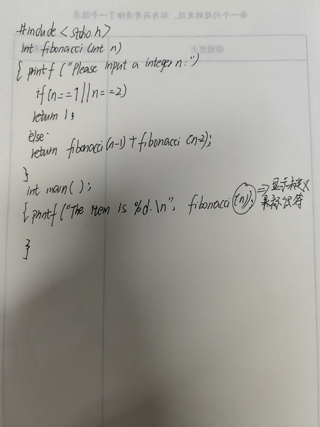 #include <stdio.h>
int fibonacci (int n)
{ printf ("Please input a integer n:")
if (n==1||n==2)
return 1;
else
return fibonacci(n-1)+fibonacci(n-2);
}
int main ( );
{ printf ("The item is %d.\n", fibonacci (n)); ⇒显示未定义
未标识符
}